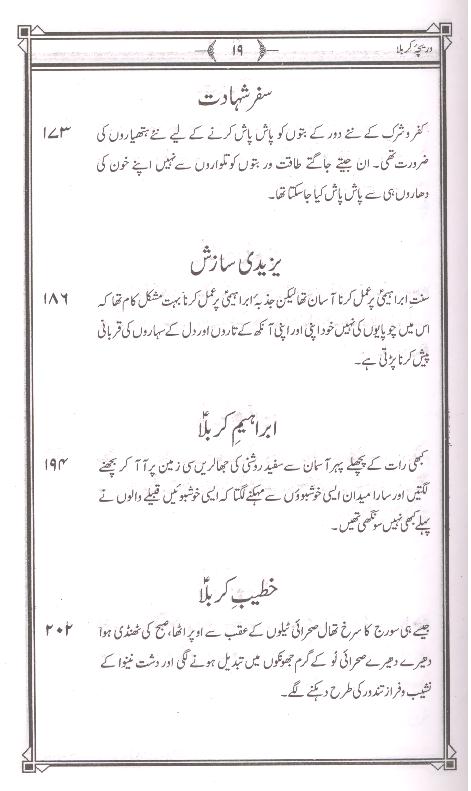 دریچۂ کربلا
۱۹
سفر شہادت
کفر و شرک کے نئے دور کے بتوں کو پاش پاش کرنے کے لیے نئے ہتھیاروں کی ۱۷۳
ضرورت تھی۔ ان جیتے جاگتے طاقت ور بتوں کو تلواروں سے نہیں اپنے خون کی
دھاروں ہی سے پاش پاش کیا جا سکتا تھا۔
یزیدی سازش
سنتِ ابراہیمیؑ پر عمل کرنا آسان تھا لیکن جذبۂ ابراہیمیؑ پر عمل کرنا بہت مشکل کام تھا کہ ۱۸۶
اس میں چوپایوں کی نہیں خود اپنی اور اپنی آنکھ کے تاروں اور دل کے سہاروں کی قربانی
پیش کرنا پڑتی ہے۔
ابراہیمِ کربلاؑ
کبھی رات کے پچھلے پہر آسمان سے سفید روشنی کی جھالریں سی زمین پر آ آ کر بچھنے ۱۹۴
لگتیں اور سارا میدان ایسی خوشبوؤں سے مہکنے لگتا کہ ایسی خوشبوئیں قبیلے والوں نے
پہلے کبھی نہیں سونگھی تھیں۔
خطیبِ کربلاؑ
جیسے ہی سورج کا سرخ تھال صحرائی ٹیلوں کے عقب سے اوپر اٹھا، صبح کی ٹھنڈی ہوا ۲۰۲
دھیرے دھیرے صحرائی لُو کے گرم جھونکوں میں تبدیل ہونے لگی اور دشت نینوا کے
نشیب و فراز تندور کی طرح دہکنے لگے۔